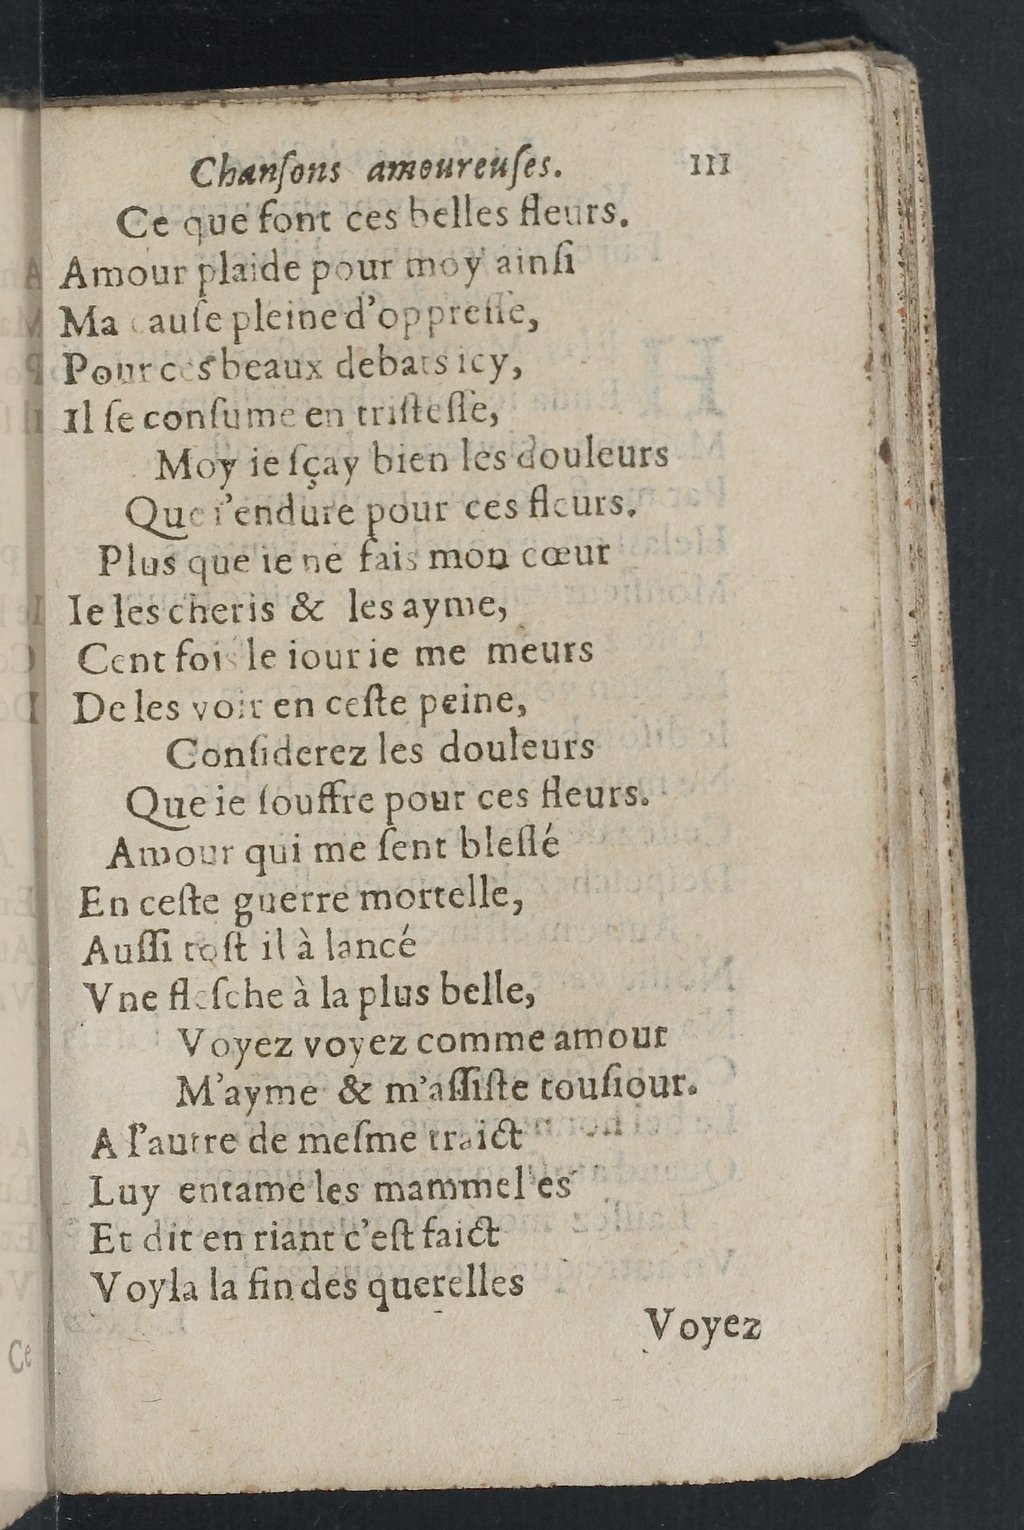 Chanſons amoureuſes. 111
Ce que font ces belles fleurs.
Amour plaide pour moy ainſi
Ma cauſe pleine d'oppreſſe,
Pour ces beaux debats icy,
Il ſe conſume en triſteſſe,
Moy ie ſçay bien les douleurs
Que i'endure pour ces fleurs.
Plus que ie ne fais mon cœur
Ie les cheris & les ayme,
Cent fois le iour ie me meurs
De les voir en ceſte peine,
Conſiderez les douleurs
Que ie ſouffre pour ces fleurs.
Amour qui me ſent bleſſé
En ceſte guerre mortelle,
Auſſi toſt il à lancé
Vne fleſche à la plus belle,
Voyez voyez comme amour
M'ayme & m'aſſiſte touſiour.
A l'autre de meſme traict
Luy entame les mammelles
Et dit en riant c'eſt faict
Voyla la fin des querelles
Voyez
Ce